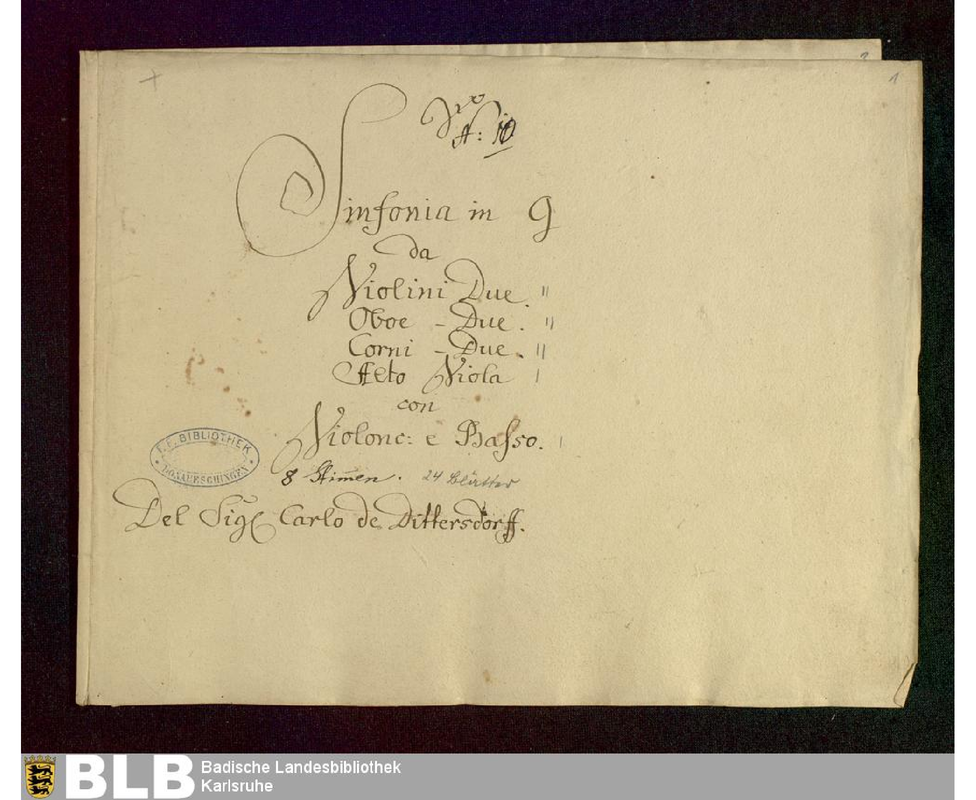 2
1
Nro
Sinfonia in G
da
Violini Due. "
Oboe – Due. "
Corni – Due. "
Alto Viola '
con
Violonc: e Basso. '
F. F. BIBLIOTHEK
DONAUESCHINGEN
8 Stim̅en. 24 Blätter
Del Sigr Carlo de Dittersdorff.
BLB
Badische Landesbibliothek
Karlsruhe